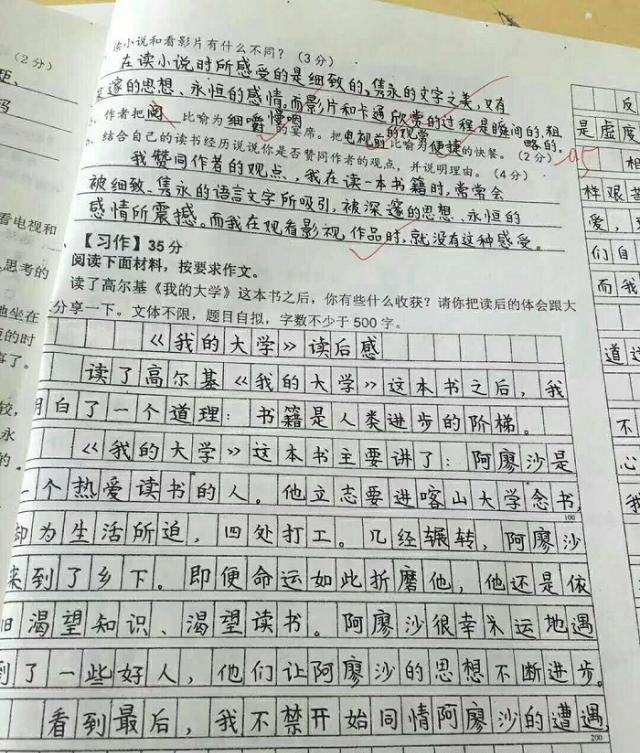 (2分)
读小说和看影片有什么不同?(3分)
在读小说时所感受的是细致的、隽永的文字之美,又有
邃的思想、永恒的感情。而影片和卡通欣常的过程是瞬间的、粗
略的。
作者把阅 比喻为细嚼慢咽的宴席。把电视的观常比喻为便捷的快餐。(2分)
结合自己的读书经历说说你是否赞同作者的观点,并说明理由。(4分)
我赞同作者的观点、我在读一本书籍时,常常会
被细致、隽永的语言文字所吸引,被深邃的思想、永恒的
感情所震撼。而我在观看影视作品时,就没有这种感受。
【习作】35分
阅读下面材料,按要求作文。
读了高尔基《我的大学》这本书之后,你有些什么收获?请你把读后的体会跟大
分享一下。文体不限,题目自拟,字数不少于500字。
《我的大学》读后感
读了高尔基《我的大学》这本书之后,我
明白了一个道理:书籍是人类进步的阶梯。
《我的大学》这本书主要讲了:阿廖沙是
一个热爱读书的人。他立志要进喀山大学念书,
100
却为生活所迫,四处打工。几经辗转,阿廖沙
来到了乡下。即便命运如此折磨他,他还是依
旧渴望知识、渴望读书。阿廖沙很幸运地遇
到了一些好人,他们让阿廖沙的思想不断进步。
看到最后,我不禁开始同情阿廖沙的遭遇,
200
看电视和
思考的
坐在
的时
了。
较,
永
的。
反
是虚度
相
样艰苦
爱,
们自
而我
道这
不
心
我